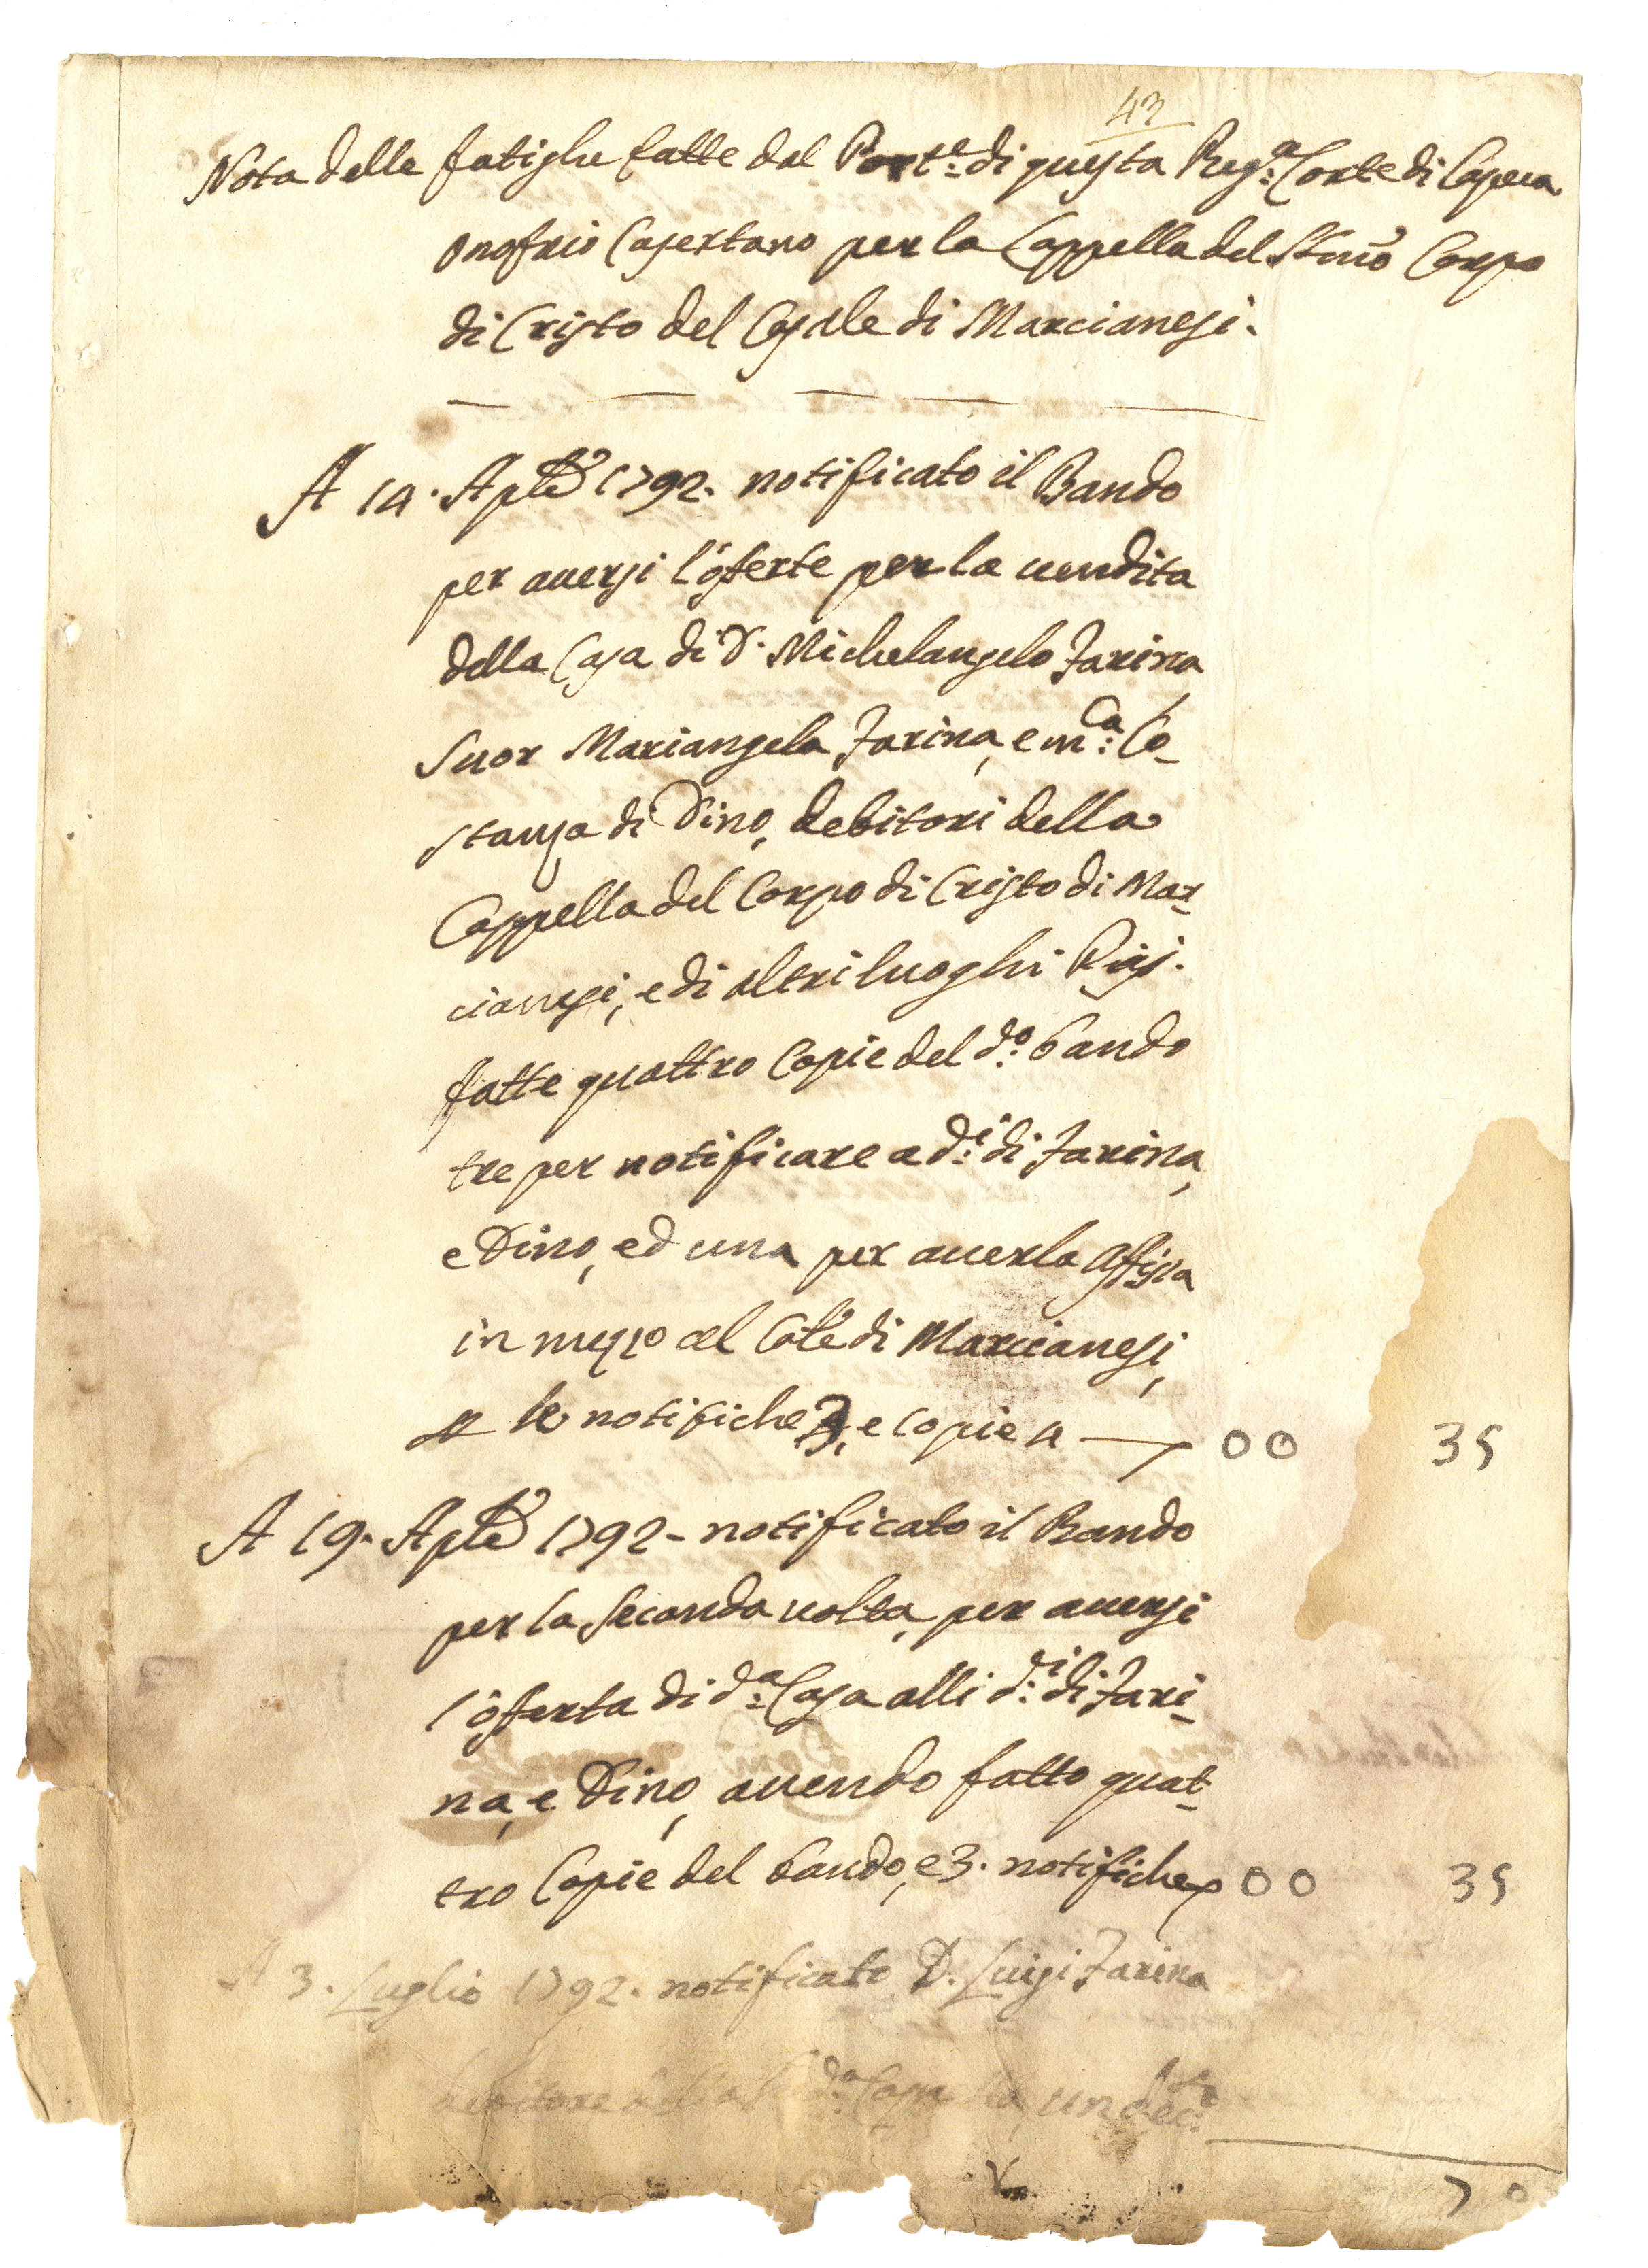 43
Nota delle fatighe fatte dal Port.e di questa Reg.a Corte di Capua
Onofrio Casertano per la Cappella del SSmo Corpo
di Cristo del Casale di Marcianesi.
A 14. Aple 1792. notificato il Bando
per auersi l'offerte per la uendita
della Casa di D. Michelangelo Farina,
Suor Mariangela Farina, e m.ca Co-
stanza di Dino, debitori della
Cappella del Corpo di Cristo di Mar-
cianesi, e di altri luoghi Pij.
fatte quattro Copie del d.o bando
tre per notificare a d.i di Farina,
e Dino, ed una per auerla affissa
in mezzo al Cale di Marcianesi,
le notifiche 3, e copie 4 — 00 35
A 19. Aple 1792 - notificato il Bando
per la seconda uolta, per auersi
l'offerta di d.a Casa alli d.i di Fari-
na, e Dino, auendo fatto quat-
tro Copie del bando, e 3. notifiche 00 35
A 3. Luglio 1792. notificato D. Luigi Farina
debitore della d.a Cappella, un dec.to
70